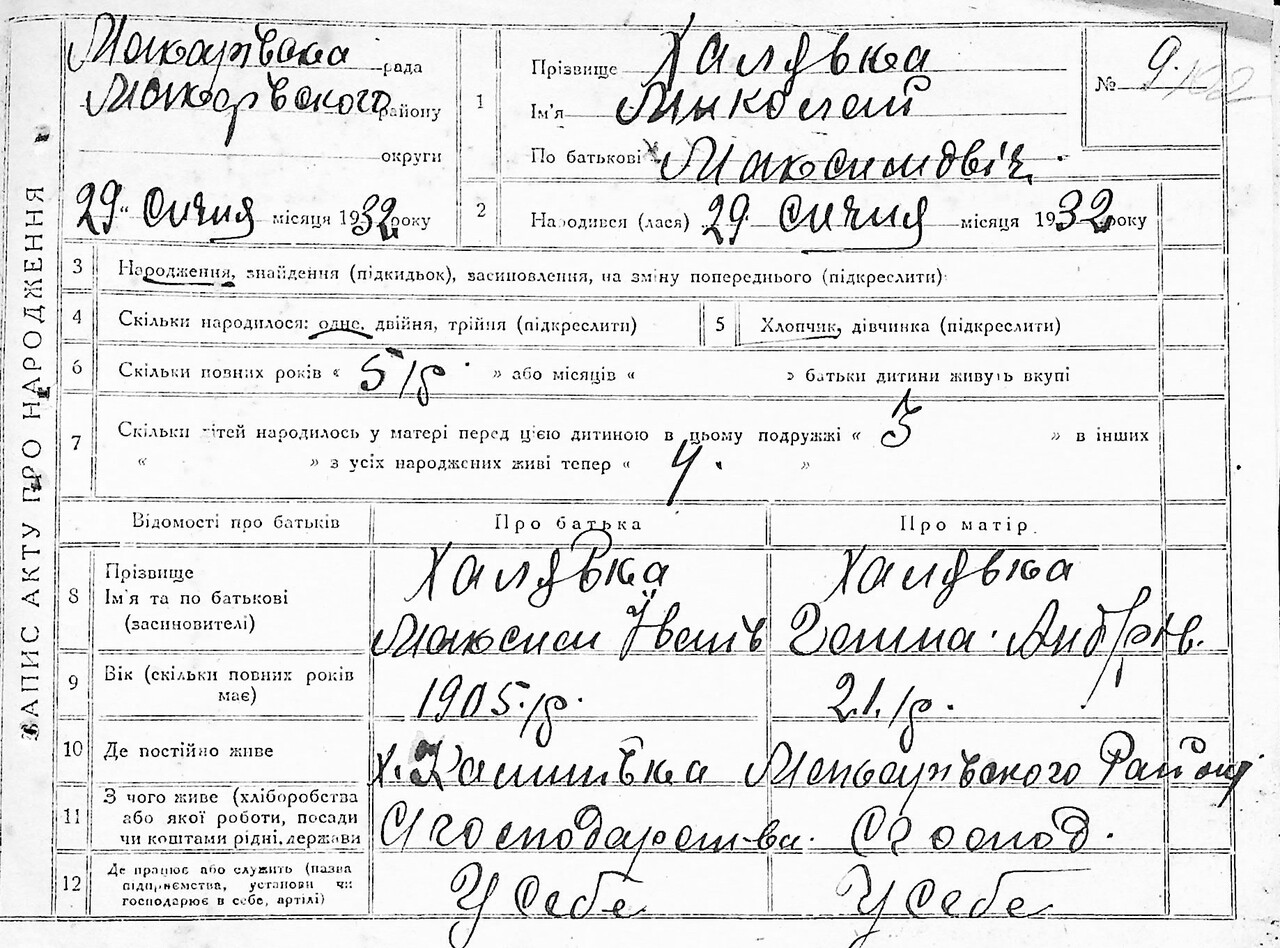 ЗАПИС АКТУ ПРО НАРОДЖЕННЯ
Макарівська рада
Макарівського району
округи
29 січня місяця 1932 року
1
Прізвище Халявка
Ім'я Миколай
По батькові Максимович
№ 9
2
Народився (лася) 29 січня місяця 1932 року
3 Народження, знайдення (підкидьок), засиновлення, на зміну попереднього (підкреслити)
4 Скільки народилося: одне, двійня, трійня (підкреслити)
5 Хлопчик, дівчинка (підкреслити)
6 Скільки повних років « 5 » або місяців « » батьки дитини живуть вкупі
7 Скільки дітей народилось у матері перед цією дитиною в цьому подружжі « 3 » в інших
« » з усіх народжених живі тепер « 4 »
Відомості про батьків Про батька Про матір
8 Прізвище
Ім'я та по батькові
(засиновителі)
Халявка
Максим Іванів
Халявка
Ганна
9 Вік (скільки повних років
має)
1905 р.
21 р.
10 Де постійно живе
х. Калинівка Макарівського Району
11 З чого живе (хліборобства
або якої роботи, посади
чи коштами рідні, держави
С господарства
С господ.
12 Де працює або служить (назва
підприємства, установи чи
господарює в себе, артілі)
У себе
У себе